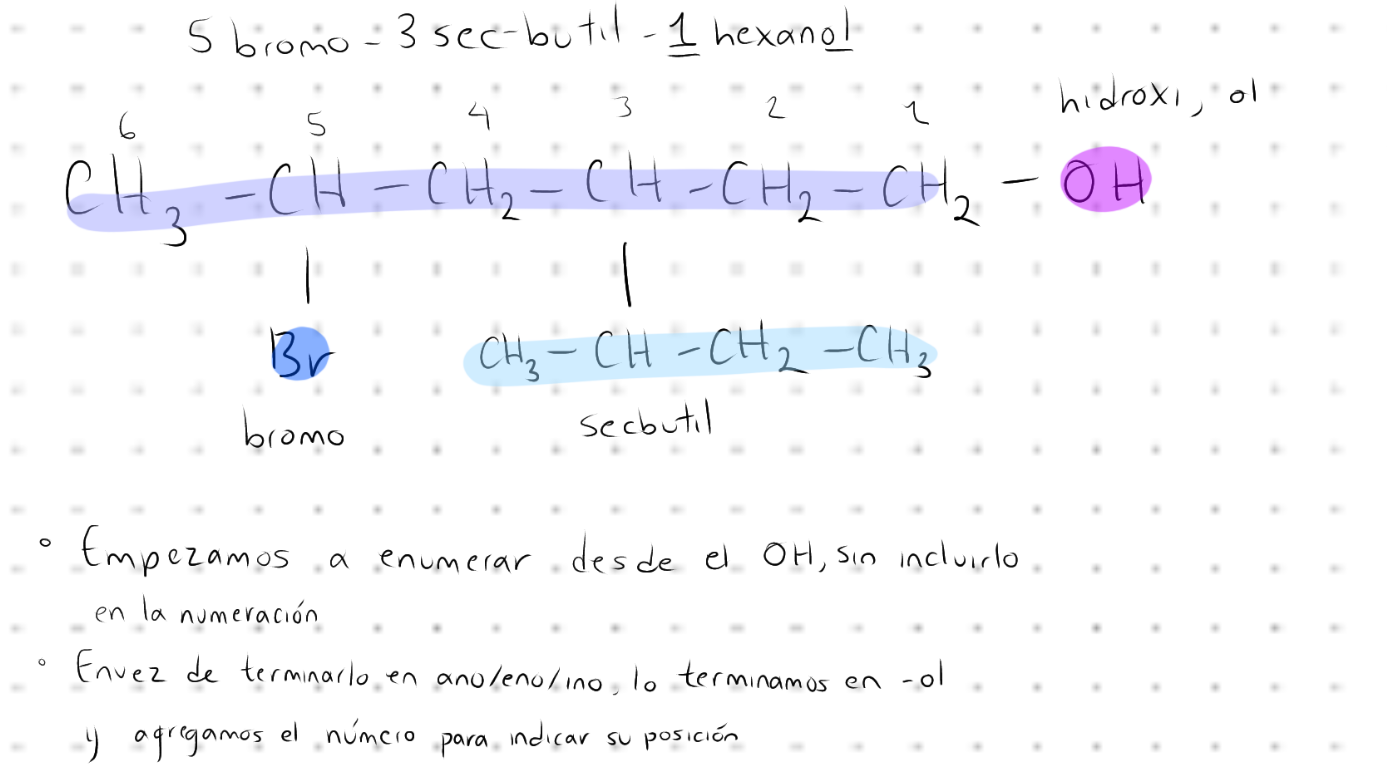 5 bromo - 3 sec-butil - 1 hexanol
hidroxi, ol
6 5 4 3 2 1
CH3 - CH - CH2 - CH - CH2 - CH2 - OH
Br CH3 - CH - CH2 - CH3
bromo secbutil
° Empezamos a enumerar desde el OH, sin incluirlo
en la numeración
° Envez de terminarlo en ano/eno/ino, lo terminamos en -ol
y agregamos el número para indicar su posición